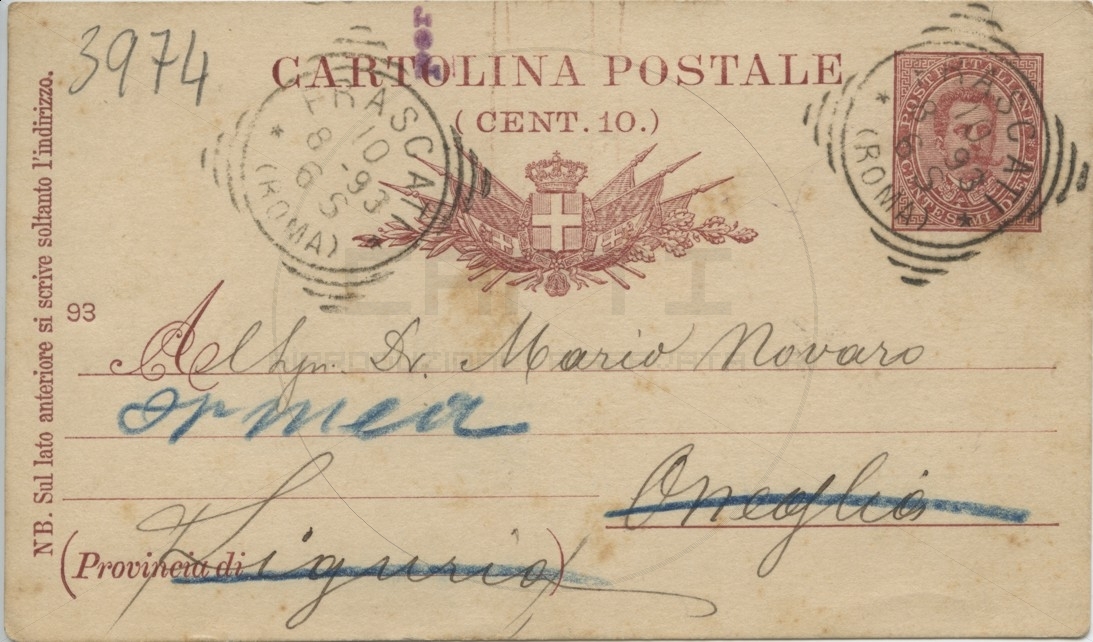 3974
CARTOLINA POSTALE
(CENT. 10.)
FRASCATI
8 10 -93
6 S
* (ROMA) *
POSTE ITALIANE
CENTESIMI DIECI
FRASCATI
8 10 93
6 S
* (ROMA) *
NB. Sul lato anteriore si scrive soltanto l'indirizzo.
93
Al Sgn. Dr. Mario Novaro
Ormea
Oneglia
(Provincia di Liguria)